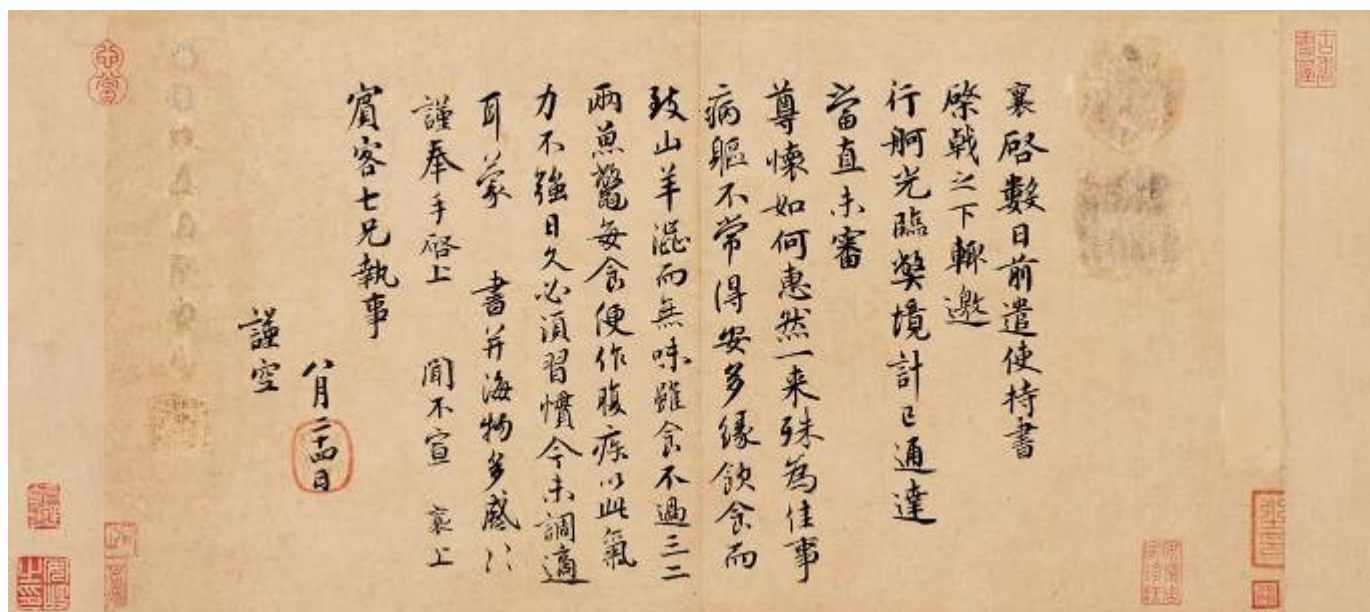 襄啓數日前遣使持書
棨戟之下輙邀
行舸光臨弊境計已通達
當直未審
尊懷如何惠然一来殊為佳事
病軀不常得安多緣飲食而
致山羊澀而無味雖食不過三二
兩魚鼈每食便作腹疾以此氣
力不強日久必須習慣今未調適
耳蒙　書并海物多感〻
謹奉手啓上　聞不宣　襄上
賓客七兄執事
八月二十四日
謹空